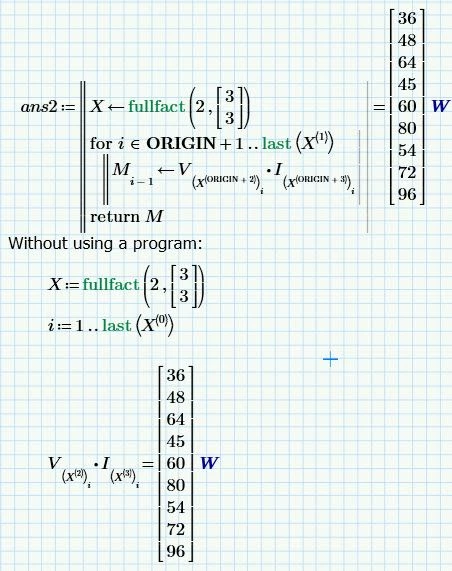 ans2 := ‖ X ← fullfact(2, [3 3])
for i ∈ ORIGIN + 1 .. last(X⟨1⟩)
M i − 1 ← V (X⟨ORIGIN + 2⟩) i · I (X⟨ORIGIN + 3⟩) i
return M
= [36 48 64 45 60 80 54 72 96] W
Without using a program:
X := fullfact(2, [3 3])
i := 1 .. last(X⟨0⟩)
V (X⟨2⟩) i · I (X⟨3⟩) i = [36 48 64 45 60 80 54 72 96] W